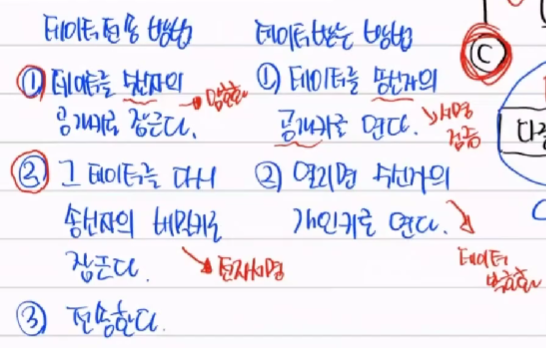 데이터 전송 방법
① 데이터를 수신자의
공개키로 잠근다.
→ 암호화
② 그 데이터를 다시
송신자의 비밀키로
잠근다.
→ 전자서명
③ 전송한다.
데이터 받는 방법
① 데이터를 송신자의
공개키로 연다.
→ 서명
검증
② 열리면 수신자의
개인키로 연다.
→ 데이터
복호화
C